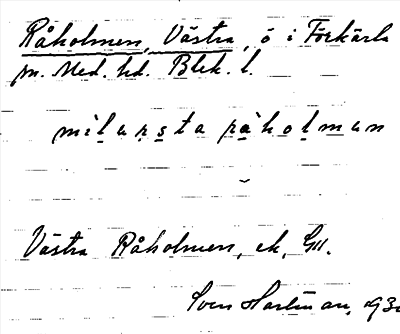 Råholmen, Västra, ö i Förkärla
sn. Med. hd. Blek. l.
råholman
Västra Råholmen, ek,
Sven Hartman, 193